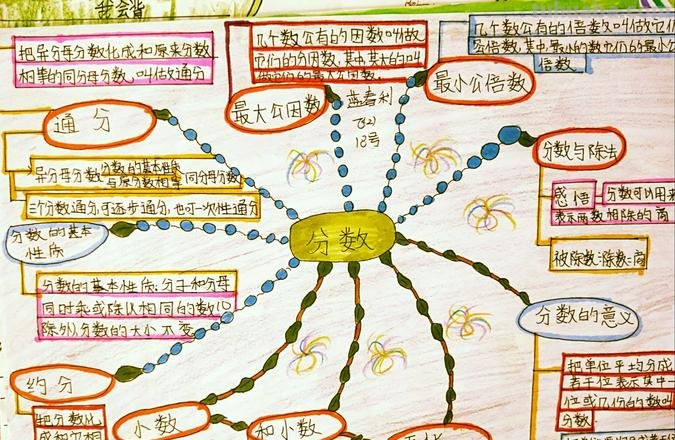 我会背
把异分母分数化成和原来分数
相等的同分母分数,叫做通分
通分
异分母分数 分数的基本性质 同分母分数
与原分数相等
三个分数通分,可逐步通分,也可一次性通分
分数的基本
性质
分数的基本性质:分子和分母
同时乘或除以相同的数(0
除外)分数的大小不变
约分
把分数化
几个数公有的因数叫做
它们的公因数,其中最大的叫
做它们的最大公因数
最大公因数
蓝春利
18号
几个数公有的倍数叫做它们
公倍数,其中最小的
倍数
最小公倍数
分数与除法
感悟
分数可以用来
表示两数相除的商
被除数÷除数=商
分数
分数的意义
把单位平均分成
若干位表示其中一
位或几份的数叫
分数
小数
和小数